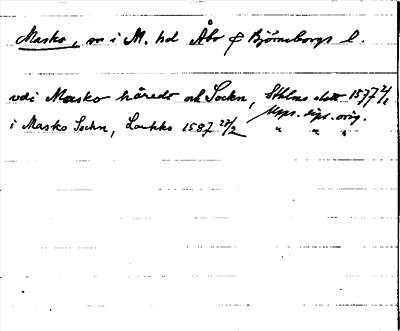 Masko, sn i M. hd Åbo & Björneborgs l.
vdi Masko häredt och Sockn, Sthlms slott 1577 2/1
Upps. dipl. orig.
i Masko Sockn, Laukko 1587 22/2 " " "